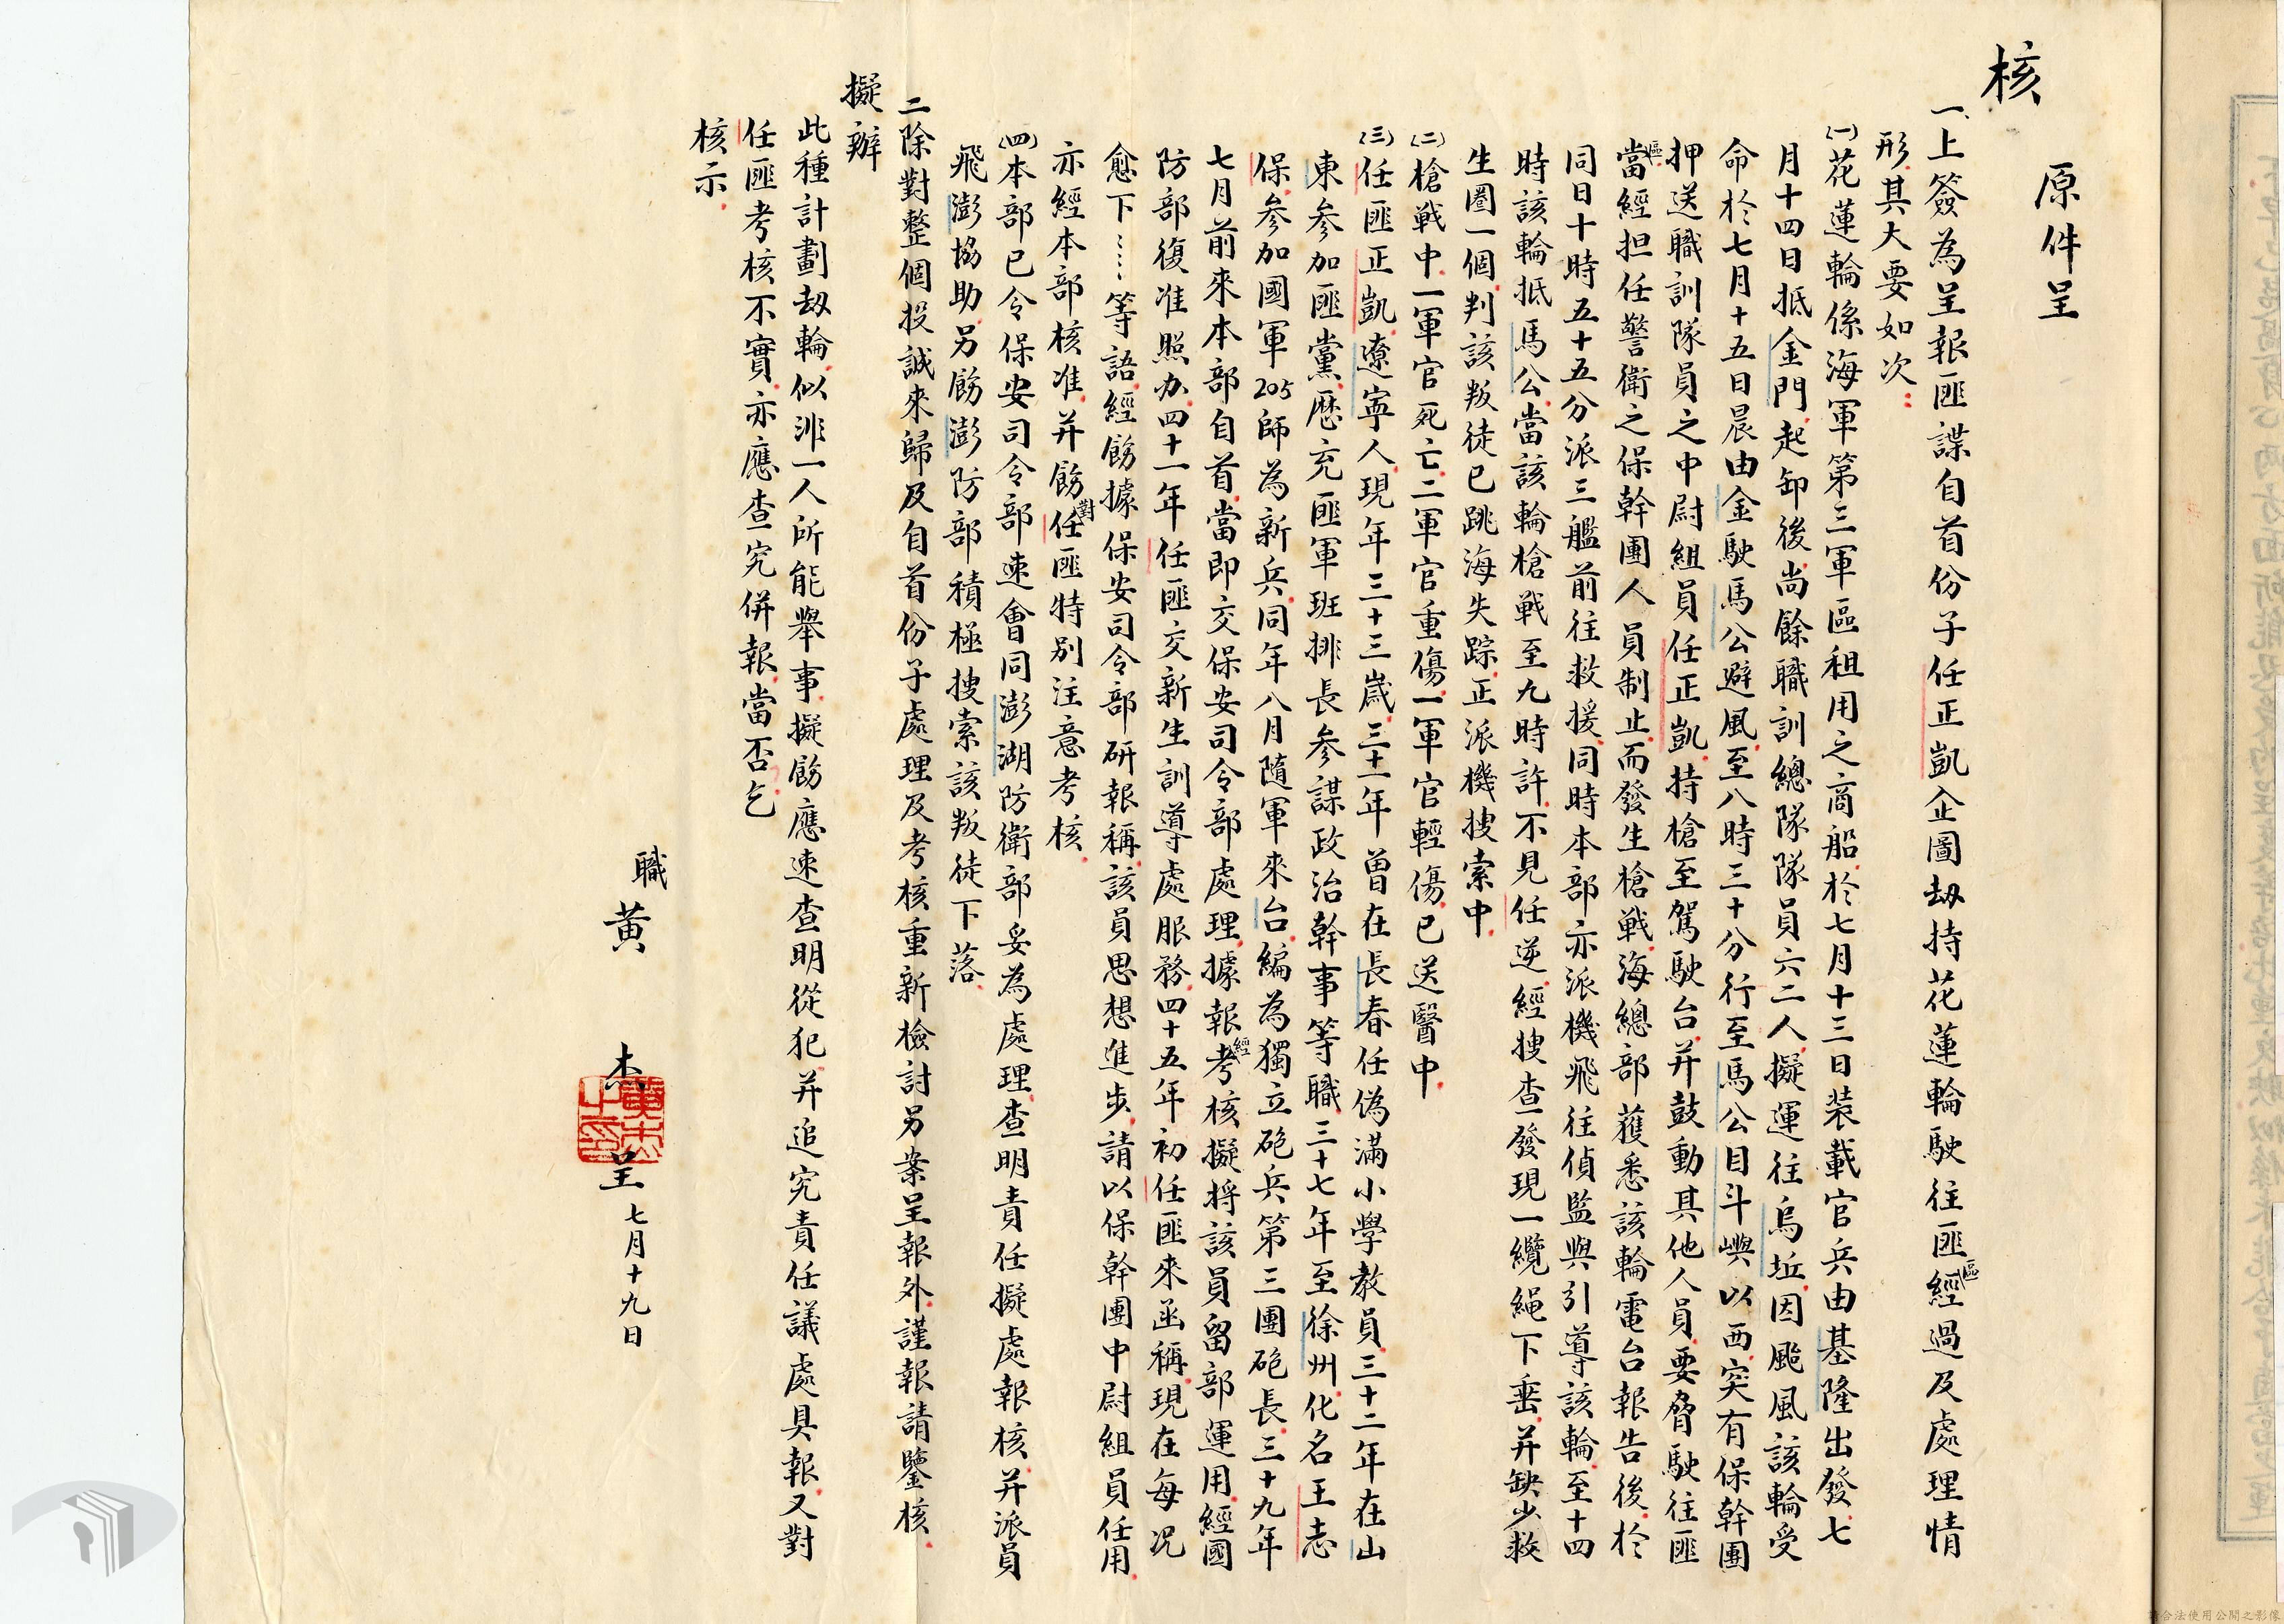 原件呈
核
一、上簽為呈報匪諜自首份子任正凱企圖刼持花蓮輪駛往匪區經過及處理情
形其大要如次：
(一)花蓮輪係海軍第三軍區租用之商船於七月十三日裝載官兵由基隆出發七
月十四日抵金門起卸後尚餘職訓總隊隊員六二人擬運往烏坵因颱風該輪受
命於七月十五日晨由金駛馬公避風至八時三十分行至馬公目斗嶼以西突有保幹團
押送職訓隊員之中尉組員任正凱持槍至駕駛台并鼓動其他人員要脅駛往匪
區當經担任警衛之保幹團人員制止而發生槍戰海總部獲悉該輪電台報告後於
同日十時五十五分派三艦前往救援同時本部亦派機飛往偵監與引導該輪至十四
時該輪抵馬公當該輪槍戰至九時許不見任逆經搜查發現一纜繩下垂并缺少救
生圈一個判該叛徒已跳海失踪正派機搜索中
(二)槍戰中一軍官死亡二軍官重傷一軍官輕傷已送醫中
(三)任匪正凱遼寧人現年三十三歲三十一年曾在長春任偽滿小學教員三十二年在山
東參加匪黨歷充匪軍班排長參謀政治幹事等職三十七年至徐州化名王志
保參加國軍205師為新兵同年八月隨軍來台編為獨立砲兵第三團砲長三十九年
七月前來本部自首當即交保安司令部處理據報經考核擬將該員留部運用經國
防部復准照办四十一年任匪交新生訓導處服務四十五年初任匪來函稱現在每況
愈下……等語經飭據保安司令部研報稱該員思想進步請以保幹團中尉組員任用
亦經本部核准并飭對任匪特別注意考核
(四)本部已令保安司令部速會同澎湖防衛部妥為處理查明責任擬處報核并派員
飛澎協助另飭澎防部積極搜索該叛徒下落
二除對整個投誠來歸及自首份子處理及考核重新檢討另案呈報外謹報請鑒核
擬辦
此種計劃刼輪似非一人所能舉事擬飭應速查明從犯并追究責任議處具報又對
任匪考核不實亦應查究併報當否乞
核示
職黃杰呈七月十九日
黃杰之印
請合法使用公開之影像